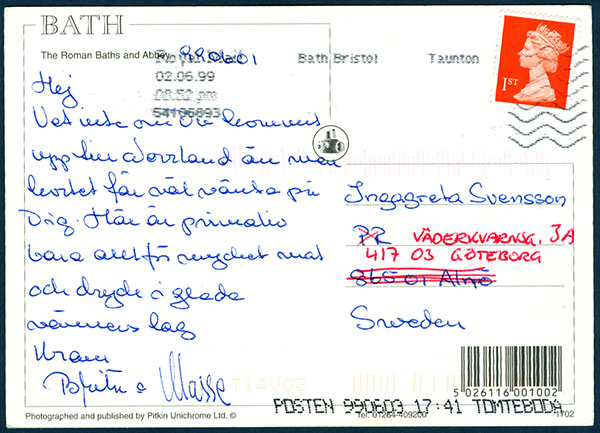 BATH
The Roman Baths and Abbey
990601
Royal Mail
Bath Bristol
Taunton
02.06.99
08:52 pm
54106893
1ST
Hej
Vet inte om Du kommit
upp från Norrland än men
kortet får väl vänta på
Dig. Här är prima liv
bara allt för mycket mat
och dryck i glada
vänners lag
Kram
Masse
Ingagreta Svensson
PR VÄDERKVARNSG. 3A
417 03 GÖTEBORG
865 01 Alnö
Sweden
T14V02
5 026116 001002
POSTEN 990603 17:41 TOMTEBODA
Photographed and published by Pitkin Unichrome Ltd. ©
Tel. 01264-409200
1702